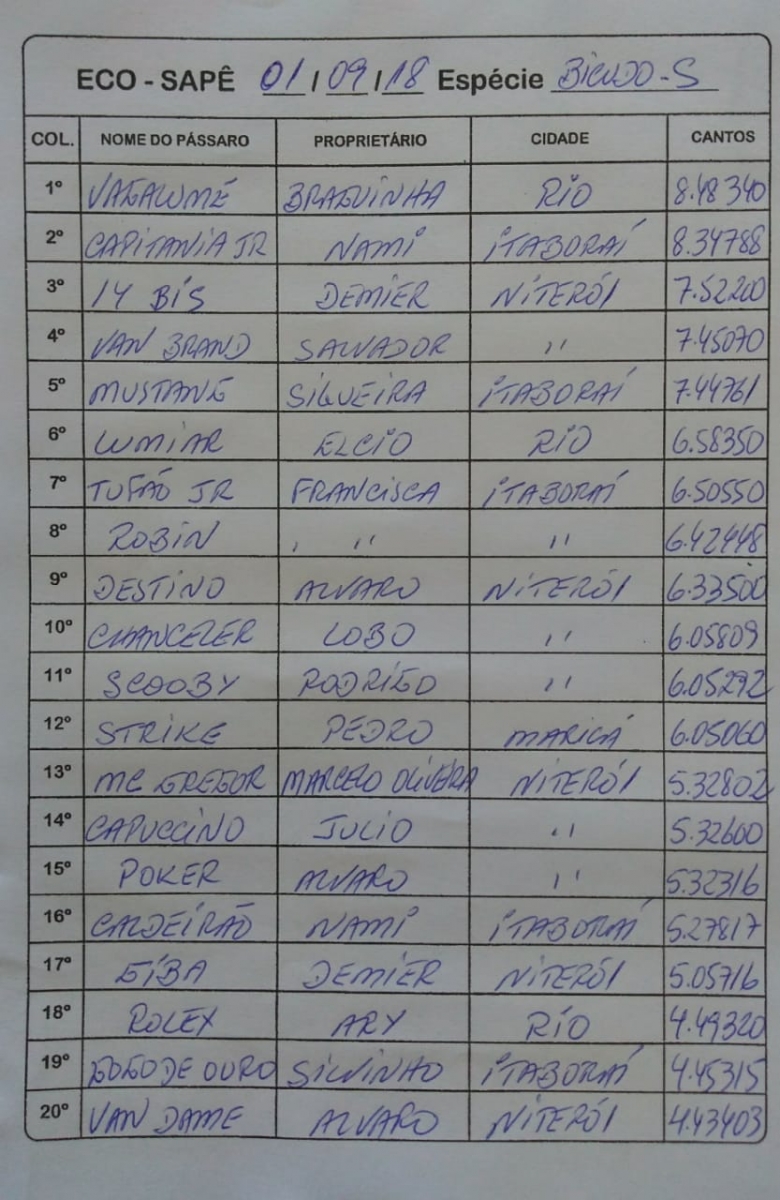 ECO - SAPÊ 01/09/18 Espécie BICUDO-S
COL. NOME DO PÁSSARO PROPRIETÁRIO CIDADE CANTOS
1º VAGALUME BRAGUINHA RIO 8.48340
2º CAPITANIA JR NAMI ITABORAÍ 8.34788
3º 14 BIS DEMIER NITERÓI 7.52200
4º VAN BRAND SALVADOR " 7.45070
5º MUSTANG SIQUEIRA ITABORAÍ 7.44761
6º LUMIAR ELCIO RIO 6.58350
7º TUFÃO JR FRANCISCA ITABORAÍ 6.50550
8º ROBIN " " 6.42448
9º DESTINO ALVARO NITERÓI 6.33500
10º CHANCELER LOBO " 6.05809
11º SCOOBY RODRIGO " 6.05292
12º STRIKE PEDRO MARICÁ 6.05060
13º MC GREGOR MARCELO OLIVEIRA NITERÓI 5.32802
14º CAPUCCINO JULIO " 5.32600
15º POKER ALVARO " 5.32316
16º CALDEIRÃO NAMI ITABORAÍ 5.27817
17º GIBA DEMIER NITERÓI 5.05716
18º ROLEX ARY RIO 4.49320
19º DE OURO SILVINHO ITABORAÍ 4.45315
20º VAN DAME ALVARO NITERÓI 4.43403